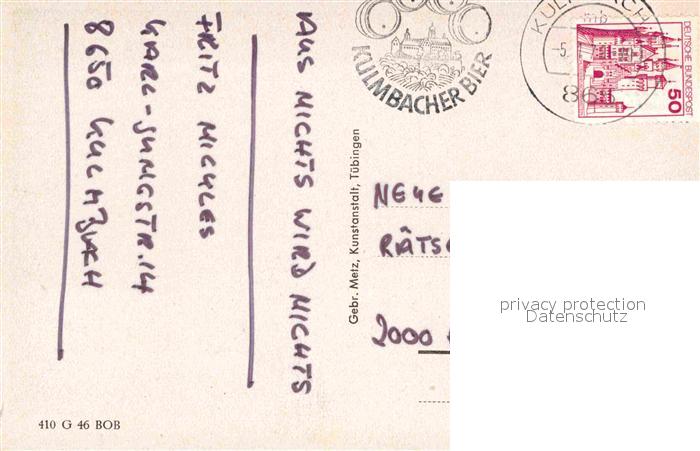 AUS NICHTS WIRD NICHTS
FRITZ MICKLES
KARL-JUNGSTR. 14
8650 KULMBACH
KULMBACHER BIER
KULMBACH
-5.
86
DEUTSCHE BUNDESPOST
50
Gebr. Metz, Kunstanstalt, Tübingen
NEUE
RÄTS
2000
privacy protection
Datenschutz
410 G 46 BOB